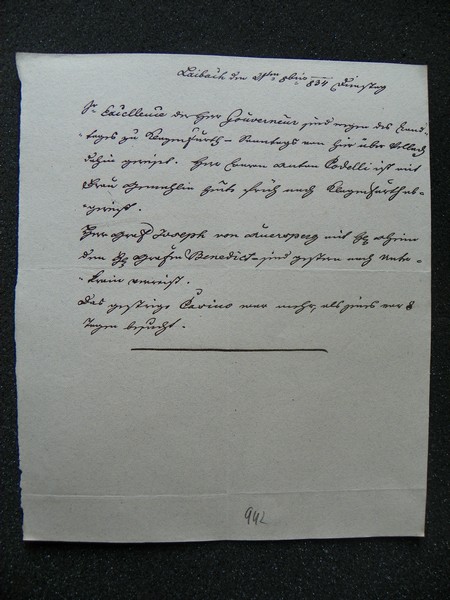 Laibach den 8ten 8bris 834 Dienstag
Sr Excellence der Herr Gouverneur sind wegen des Land-
-tages zu Klagenfurth – Sonntags von hier über Villach
dahin gereiset. Herr Baron Anton Codelli ist mit
Frau Gemahlin heute früh nach Klagenfurth ab-
-gereißt.
Herr Graf Joseph von Auersperg mit
dem Grafen Benedict – sind gestern nach Unter-
-krain verreist.
Das gestrige Casino war mehr, als jenes vor 8
Tagen besucht.
942